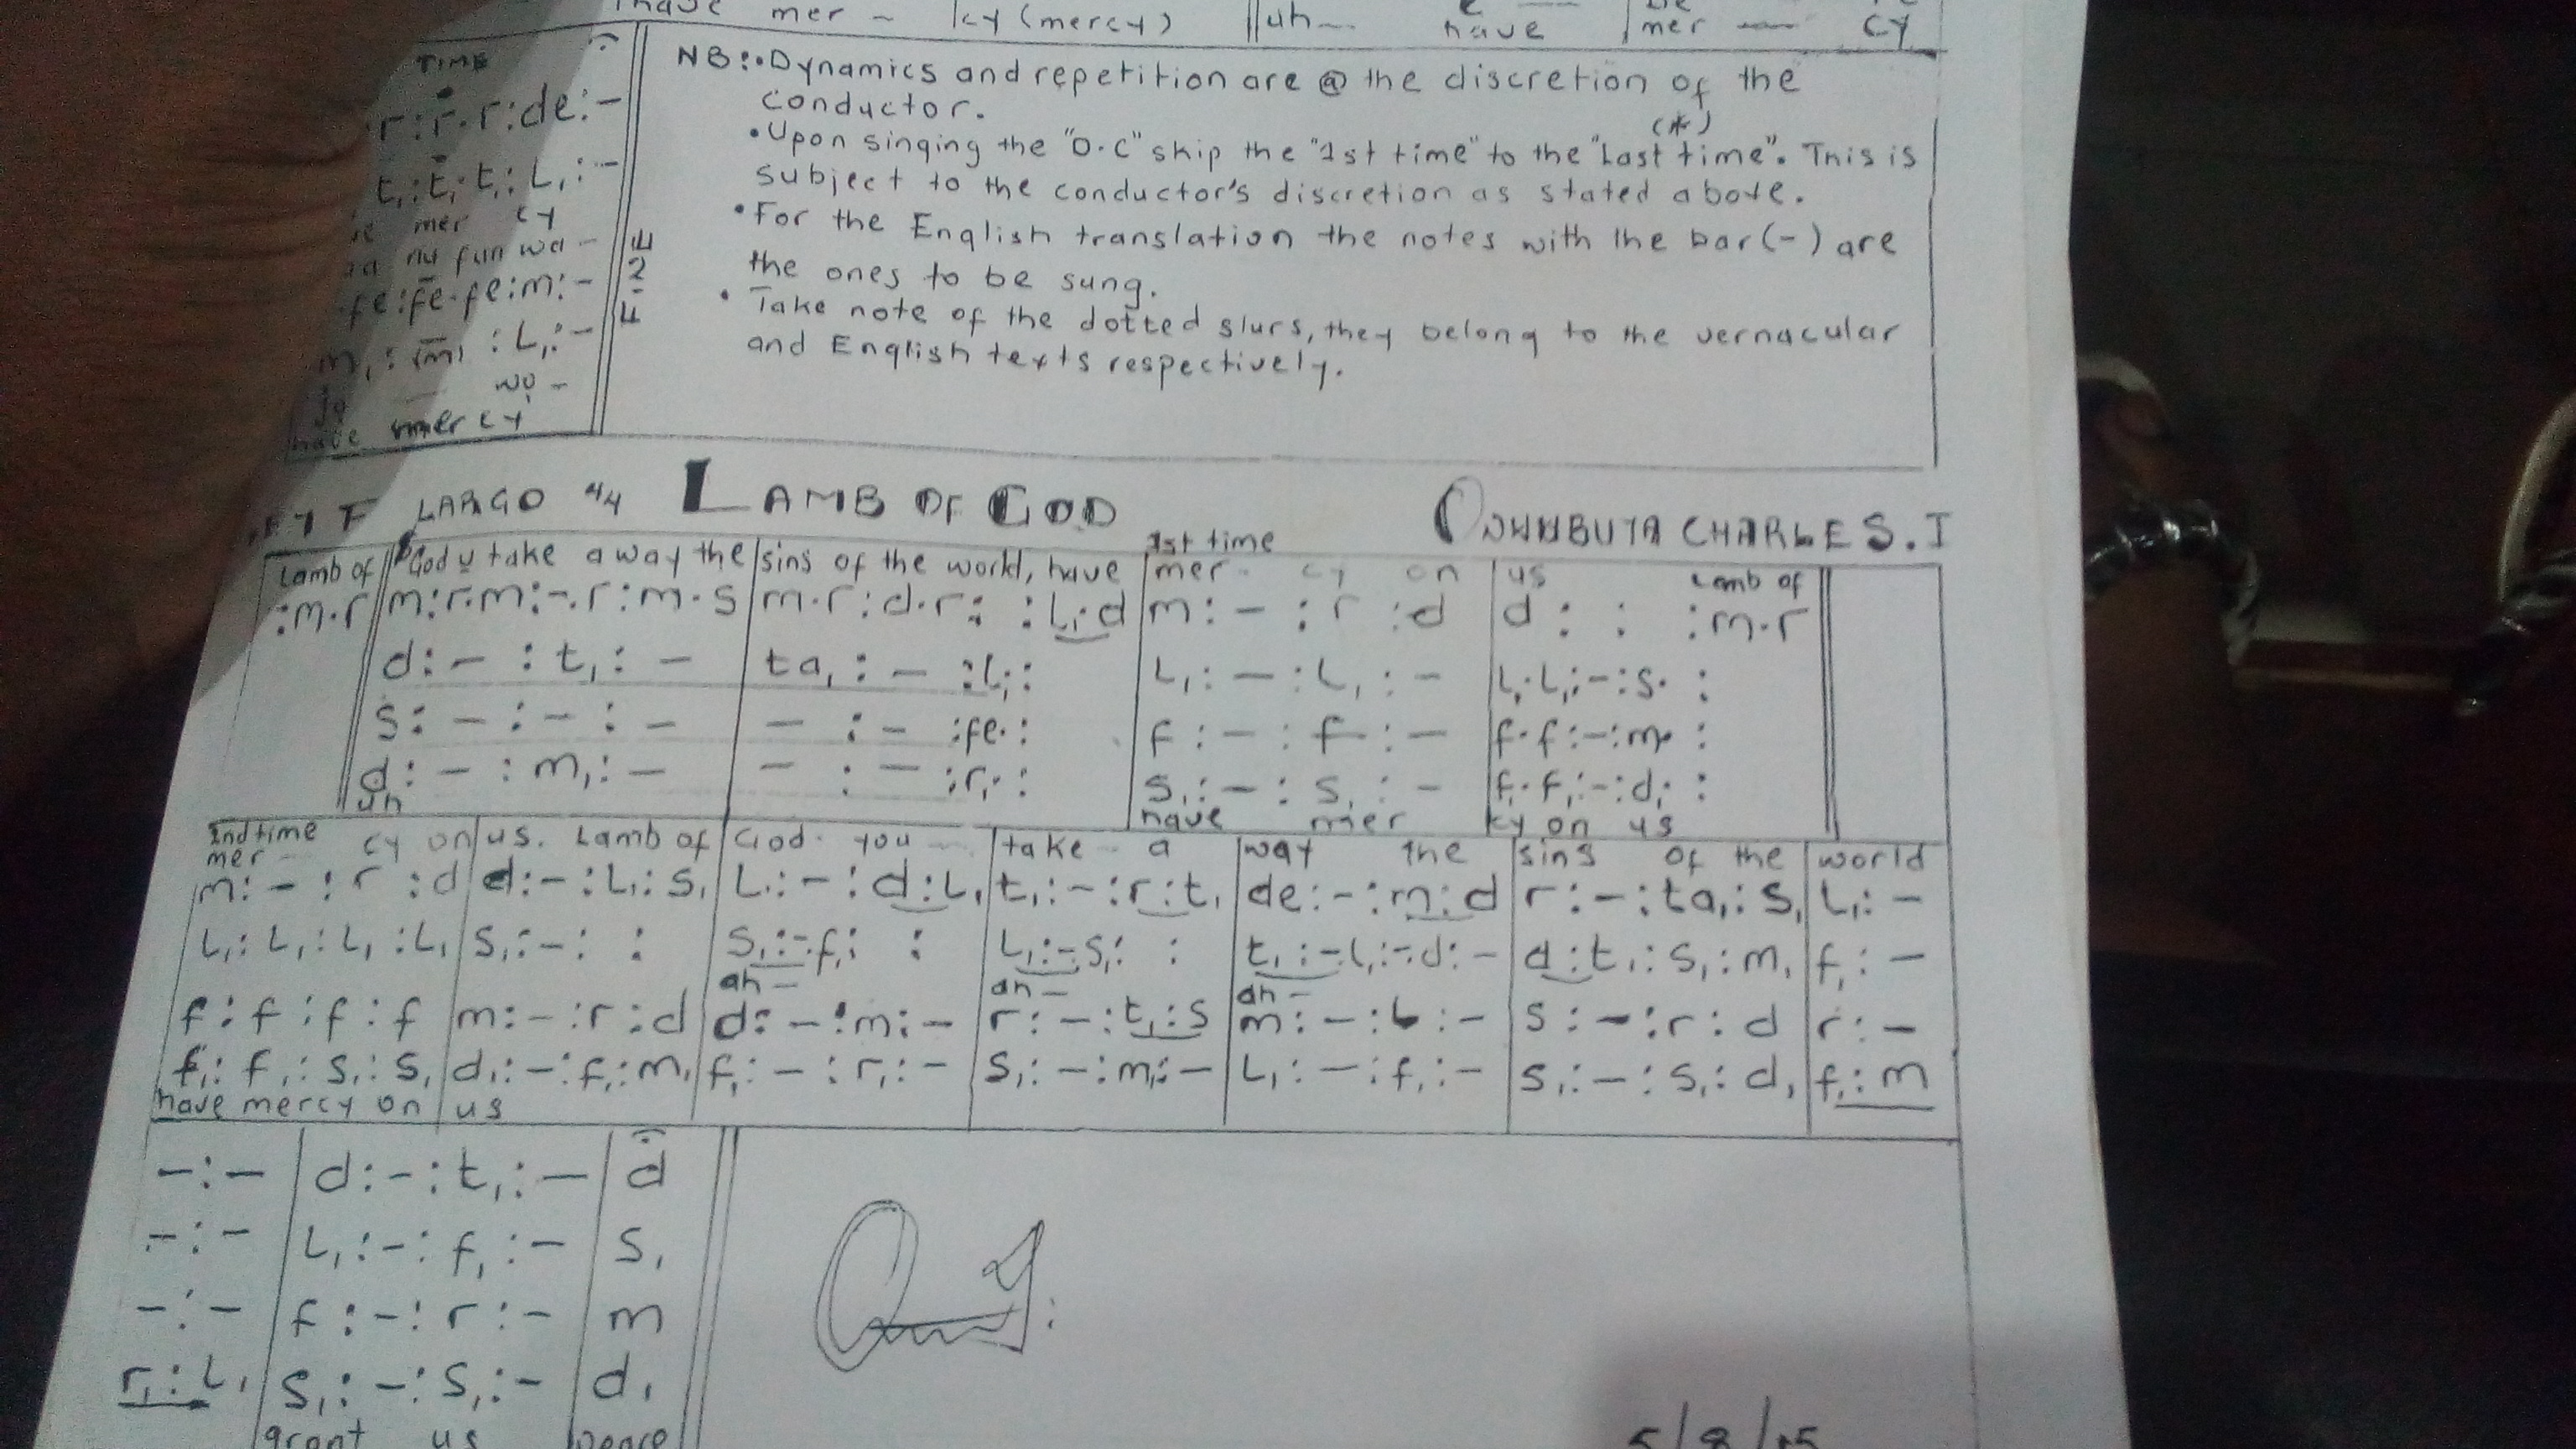 have mer - cy (mercy) uh - have mer - cy
TIME
r:r.r:de:-
t₁:t₁.t₁:L₁:-
mer cy
fe:fe.fe:m:-
m₁:(m₁) :L₁:-
wo -
have mercy
NB:•Dynamics and repetition are @ the discretion of the
conductor.
(*)
•Upon singing the "D.C" skip the "1st time" to the "Last time". This is
subject to the conductor's discretion as stated above.
•For the English translation the notes with the bar(-) are
the ones to be sung.
• Take note of the dotted slurs, they belong to the vernacular
and English texts respectively.
F LARGO 4/4 LAMB OF GOD CHARLES. I
1st time
Lamb of God u take a way the sins of the world, have mer - cy on us Lamb of
:m.r m:r.m:-.r:m.s m.r:d.r: :L₁.d m:-:r:d d: : :m.r
d:-:t₁:- ta₁:-:L₁: L₁:-:L₁:- L₁.L₁:-:s. :
s:-:-:- -:-:fe.: f:-:f:- f.f:-:m. :
d:-:m₁:- -:-:r₁.: s₁:-:s₁:- f₁.f₁:-:d₁. :
uh have mer cy on us
2nd time
mer - cy on us. Lamb of God you take a way the sins of the world
m:-:r:d d:-:L₁:s₁ L₁:-:d:L₁ t₁:-:r:t₁ de:-:m:d r:-:ta₁:s₁ L₁:-
L₁:L₁:L₁:L₁ s₁:-: : s₁:-f₁: : L₁:-s₁: : t₁:-L₁:-d:- d:t₁:s₁:m₁ f₁:-
ah - ah - ah -
f:f:f:f m:-:r:d d:-:m:- r:-:t₁:s m:-:L:- s:-:r:d r:-
f₁:f₁:s₁:s₁ d₁:-:f₁:m₁ f₁:-:r₁:- s₁:-:m₁:- L₁:-:f₁:- s₁:-:s₁:d₁ f₁:m
have mercy on us
-:- d:-:t₁:- d
-:- L₁:-:f₁:- s₁
-:- f:-:r:- m
r₁:L₁ s₁:-:s₁:- d₁
grant us peace
5/8/15